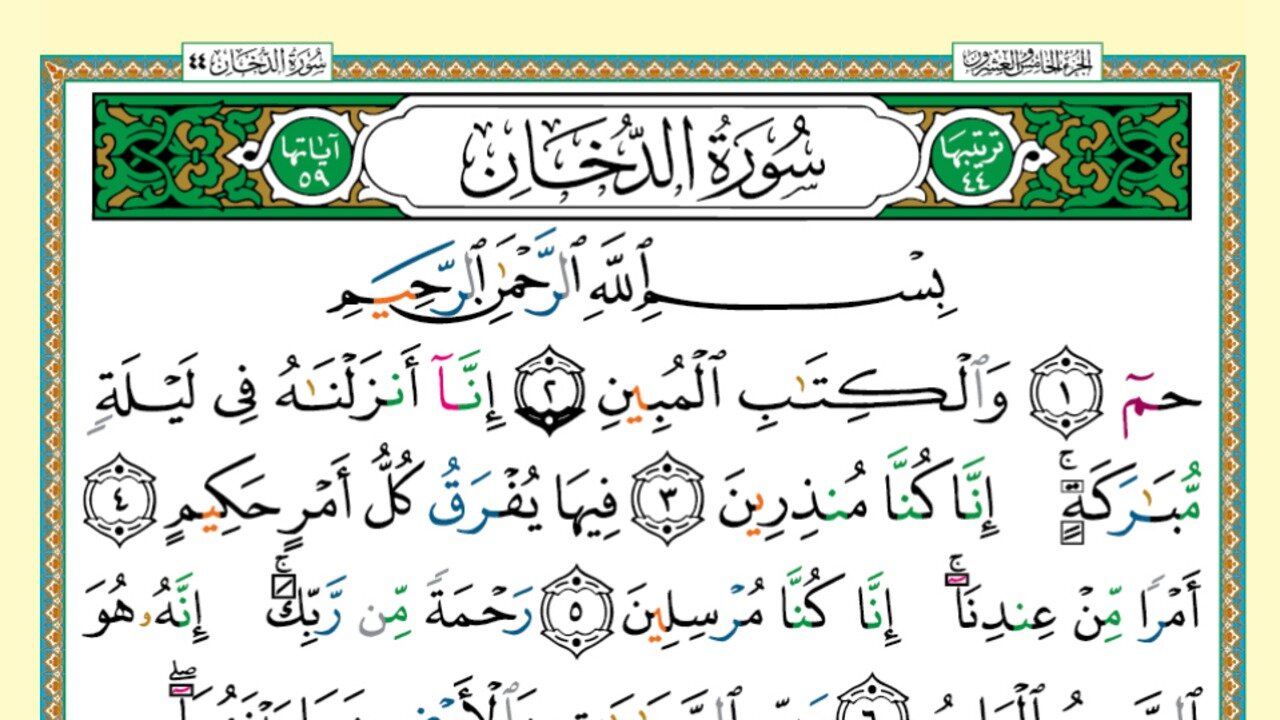 الجزء الخامس والعشرون
سُورَةُ الدُّخَانِ ٤٤
تَرتيبُهَا ٤٤
سُورَةُ الدُّخَانِ
آيَاتُهَا ٥٩
بِسۡمِ ٱللَّهِ ٱلرَّحۡمَٰنِ ٱلرَّحِيمِ
حمٓ ١ وَٱلۡكِتَٰبِ ٱلۡمُبِينِ ٢ إِنَّآ أَنزَلۡنَٰهُ فِى لَيۡلَةٍ
مُّبَٰرَكَةٍۚ إِنَّا كُنَّا مُنذِرِينَ ٣ فِيهَا يُفۡرَقُ كُلُّ أَمۡرٍ حَكِيمٍ ٤
أَمۡرًا مِّنۡ عِندِنَآۚ إِنَّا كُنَّا مُرۡسِلِينَ ٥ رَحۡمَةً مِّن رَّبِّكَۚ إِنَّهُۥ هُوَ